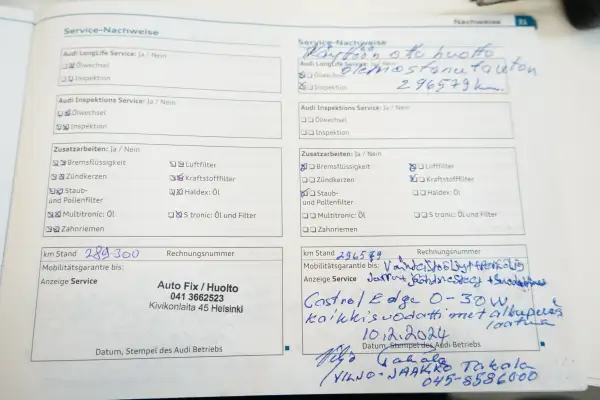 Nachweise 21
Service-Nachweise
Audi LongLife Service: Ja / Nein
Ölwechsel
Inspektion
Audi Inspektions Service: Ja / Nein
Ölwechsel
Inspektion
Zusatzarbeiten: Ja / Nein
Bremsflüssigkeit
Luftfilter
Zündkerzen
Kraftstofffilter
Staub-
und Pollenfilter
Haldex: Öl
Multitronic: Öl
S tronic: Öl und Filter
Zahnriemen
km Stand 289300 Rechnungsnummer
Mobilitätsgarantie bis:
Anzeige Service
Auto Fix / Huolto
041 3662523
Kivikonlaita 45 Helsinki
Datum, Stempel des Audi Betriebs
Service-Nachweise
huolto
Audi LongLife Service: Ja / Nein
Ölwechsel
Inspektion
296579 km.
Audi Inspektions Service: Ja / Nein
Ölwechsel
Inspektion
Zusatzarbeiten: Ja / Nein
Bremsflüssigkeit
Luftfilter
Zündkerzen
Kraftstofffilter
Staub-
und Pollenfilter
Haldex: Öl
Multitronic: Öl
S tronic: Öl und Filter
Zahnriemen
km Stand 296579 Rechnungsnummer
Mobilitätsgarantie bis:
Anzeige Service
Castrol Edge 0-30W
kaikki suodattimet
10.2.2024
Datum, Stempel des Audi Betriebs
Takala
VILJO-JAAKKO Takala
045-8586000